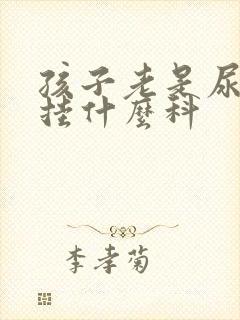 孩子老是尿
挂什麼科
李孝菊